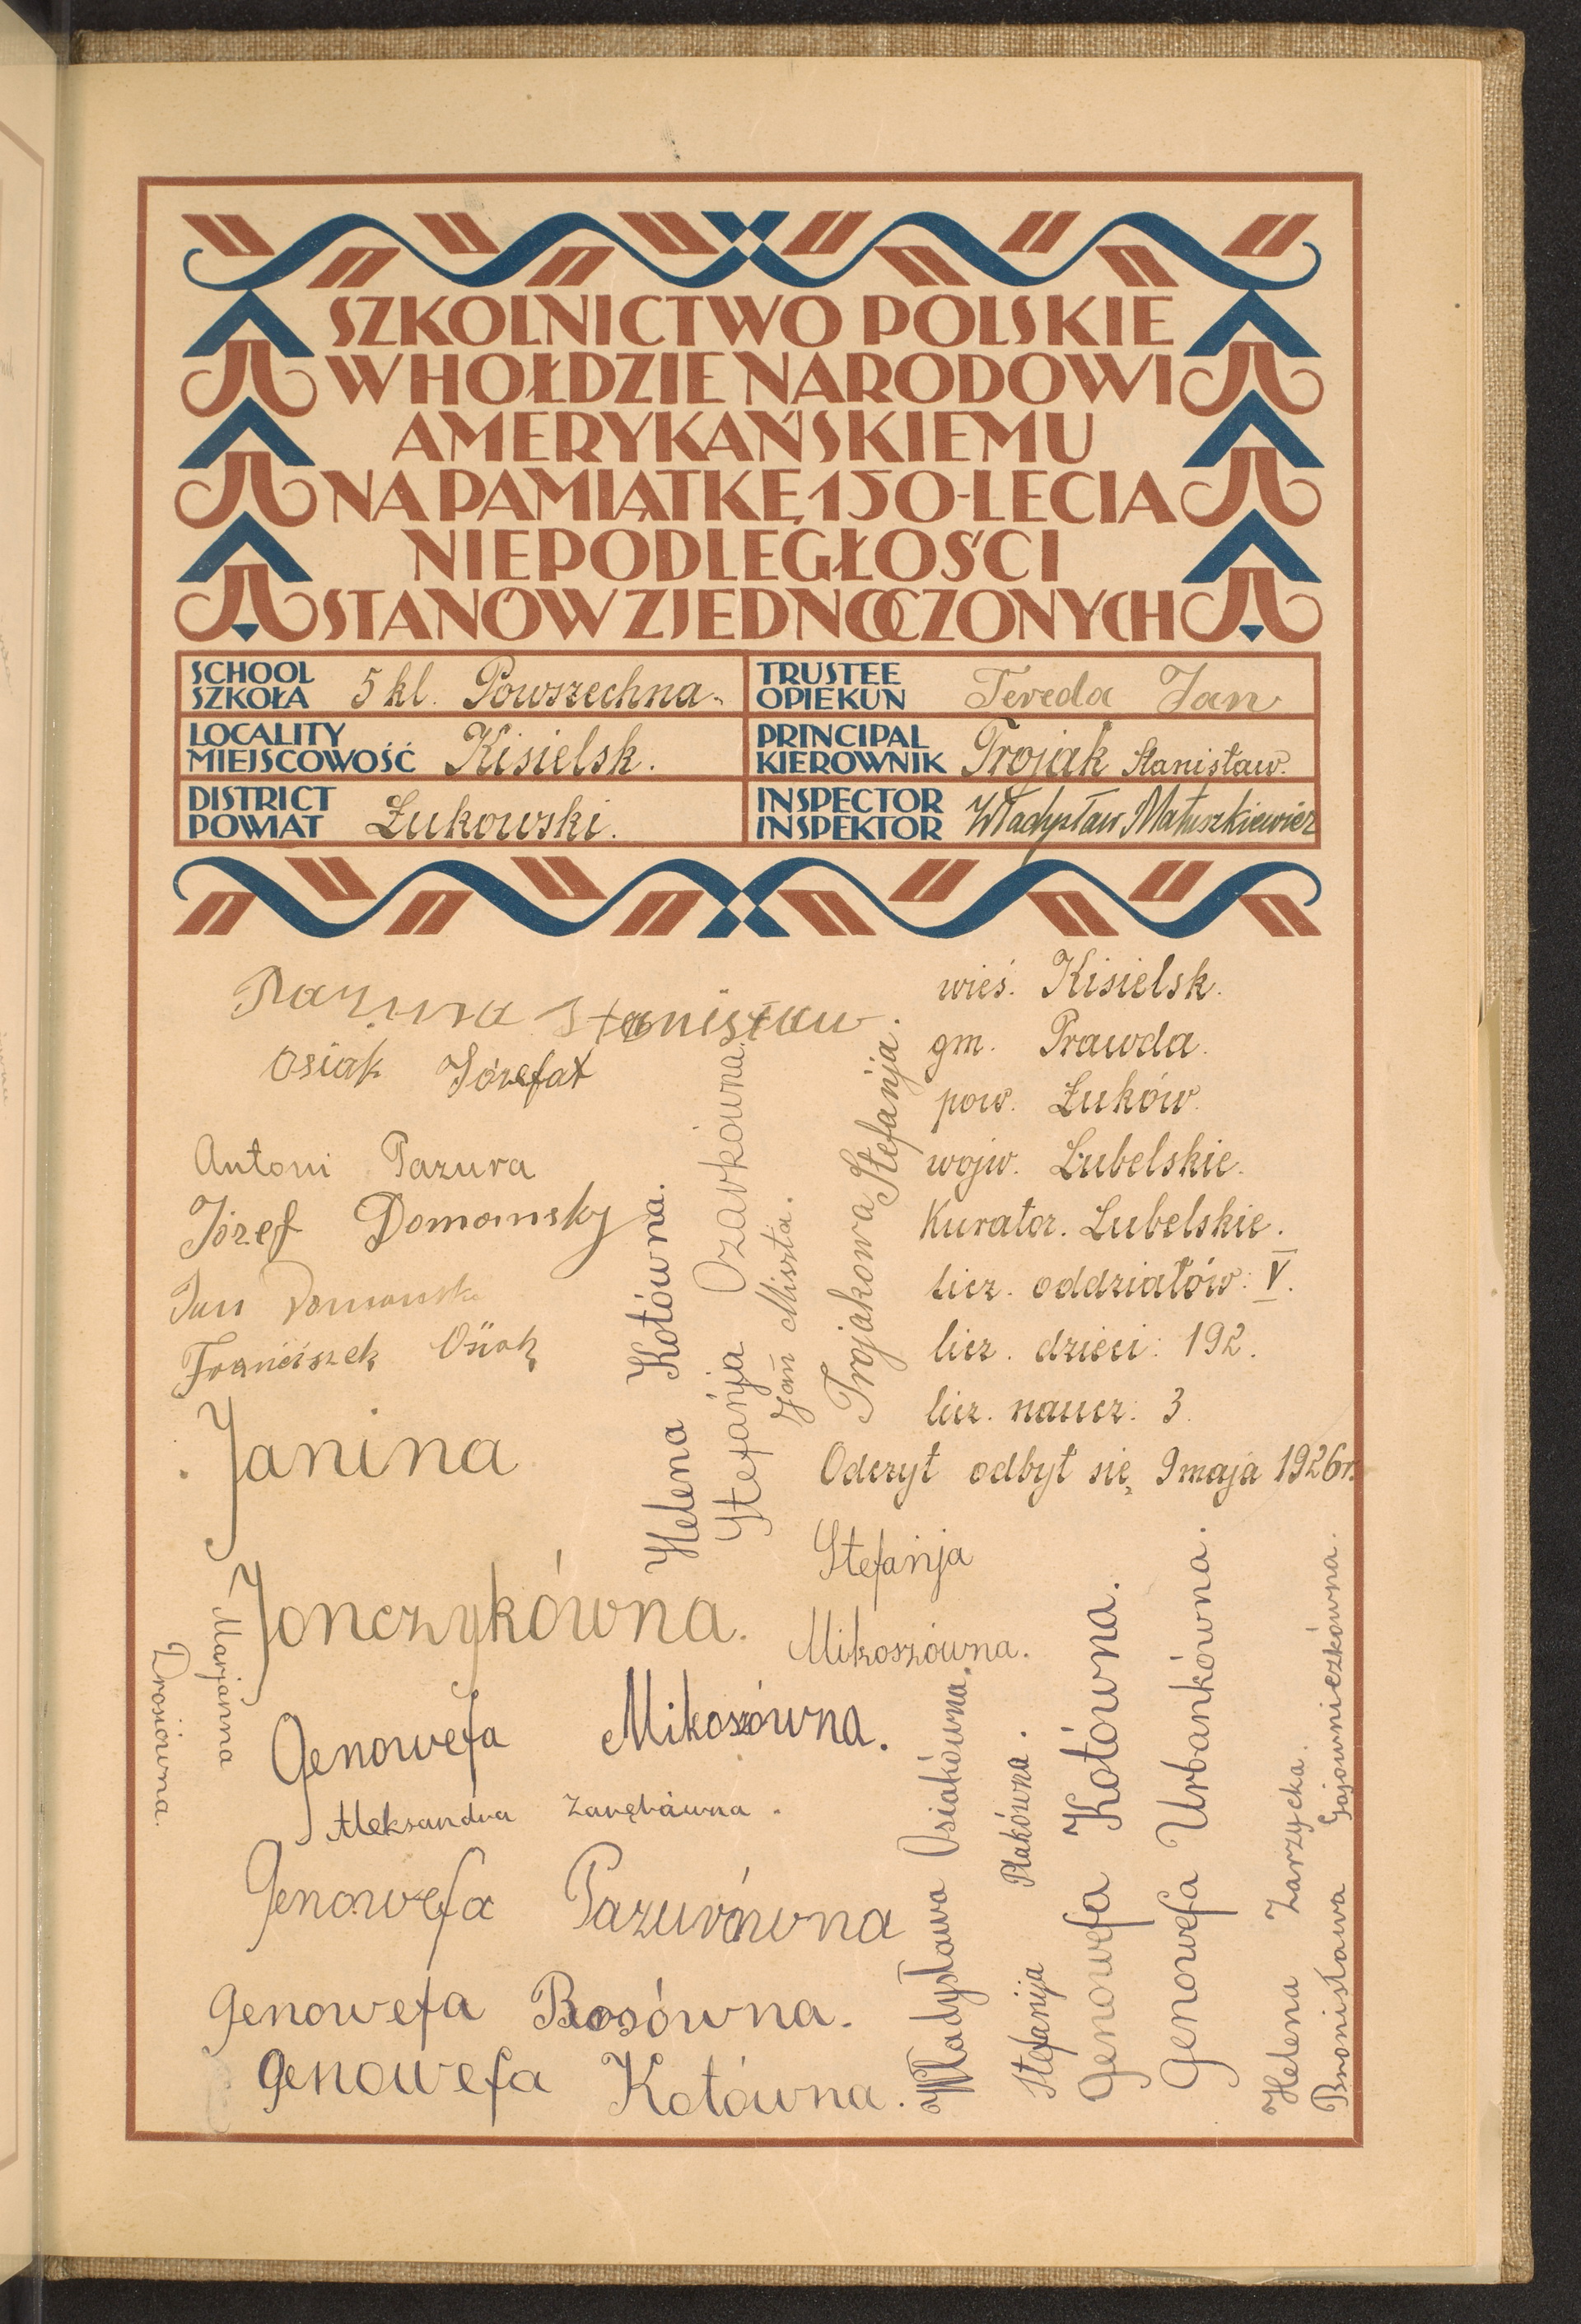 SZKOLNICTWO POLSKIE
W HOŁDZIE NARODOWI
AMERYKAŃSKIEMU
NA PAMIĄTKĘ 150-LECIA
NIEPODLEGŁOŚCI
STANÓW ZJEDNOCZONYCH
SCHOOL
SZKOŁA 5 kl. Powszechna.
TRUSTEE
OPIEKUN Tereda Jan
LOCALITY
MIEJSCOWOŚĆ Kisielsk.
PRINCIPAL
KIEROWNIK Trojak Stanisław.
DISTRICT
POWIAT Łukowski.
INSPECTOR
INSPEKTOR Władysław Matuszkiewicz
Pazura Stanisław
Osiak Józefat
Antoni Pazura
Józef Domansky
Jan Domanski
Franciszek Osiak
Janina
Jonczykówna.
Marjanna
Drosiówna.
Genowefa Mikoszówna.
Aleksandra Zarębówna.
Genowefa Pazurówna
Genowefa Bosówna.
Genowefa Kotówna.
Helena Kotówna.
Stefańja Ozarkówna.
Jan Miszta.
Trojakowa Stefanja.
wieś. Kisielsk.
gm. Prawda.
pow. Łuków.
wojw. Lubelskie.
Kurator. Lubelskie.
licz. oddziałów: V.
licz. dzieci: 192.
licz. naucz: 3.
Odczyt odbył się 9 maja 1926 r.
Stefanja
Mikoszówna.
Władysława Osiakówna.
Stefanija Ptakówna.
Genowefa Kotówna.
Genowefa Urbankówna.
Helena Zarzycka.
Bronisława Gajowniczkówna.